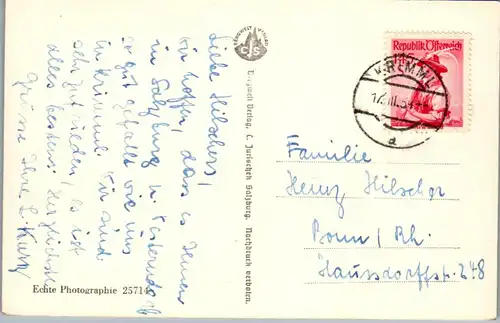 Liebe Hilschers!
Wir hoffen, dass es Ihnen
in Salzburg u.
so gut gefalle wie uns
in Krimml. Wir sind
sehr gut, es ist
alles bestens. Herzlichste
Grüsse Ihre L. Kurz
Echte Photographie 25714
BERGWELT VERLAG
CJS
Bergwelt Verlag, C. Jurischek Salzburg. Nachdruck verboten.
Republik Österreich
KRIMML
a
Familie
Heinz Hilscher
Bonn / Rh.
Hausdorffstr. 248